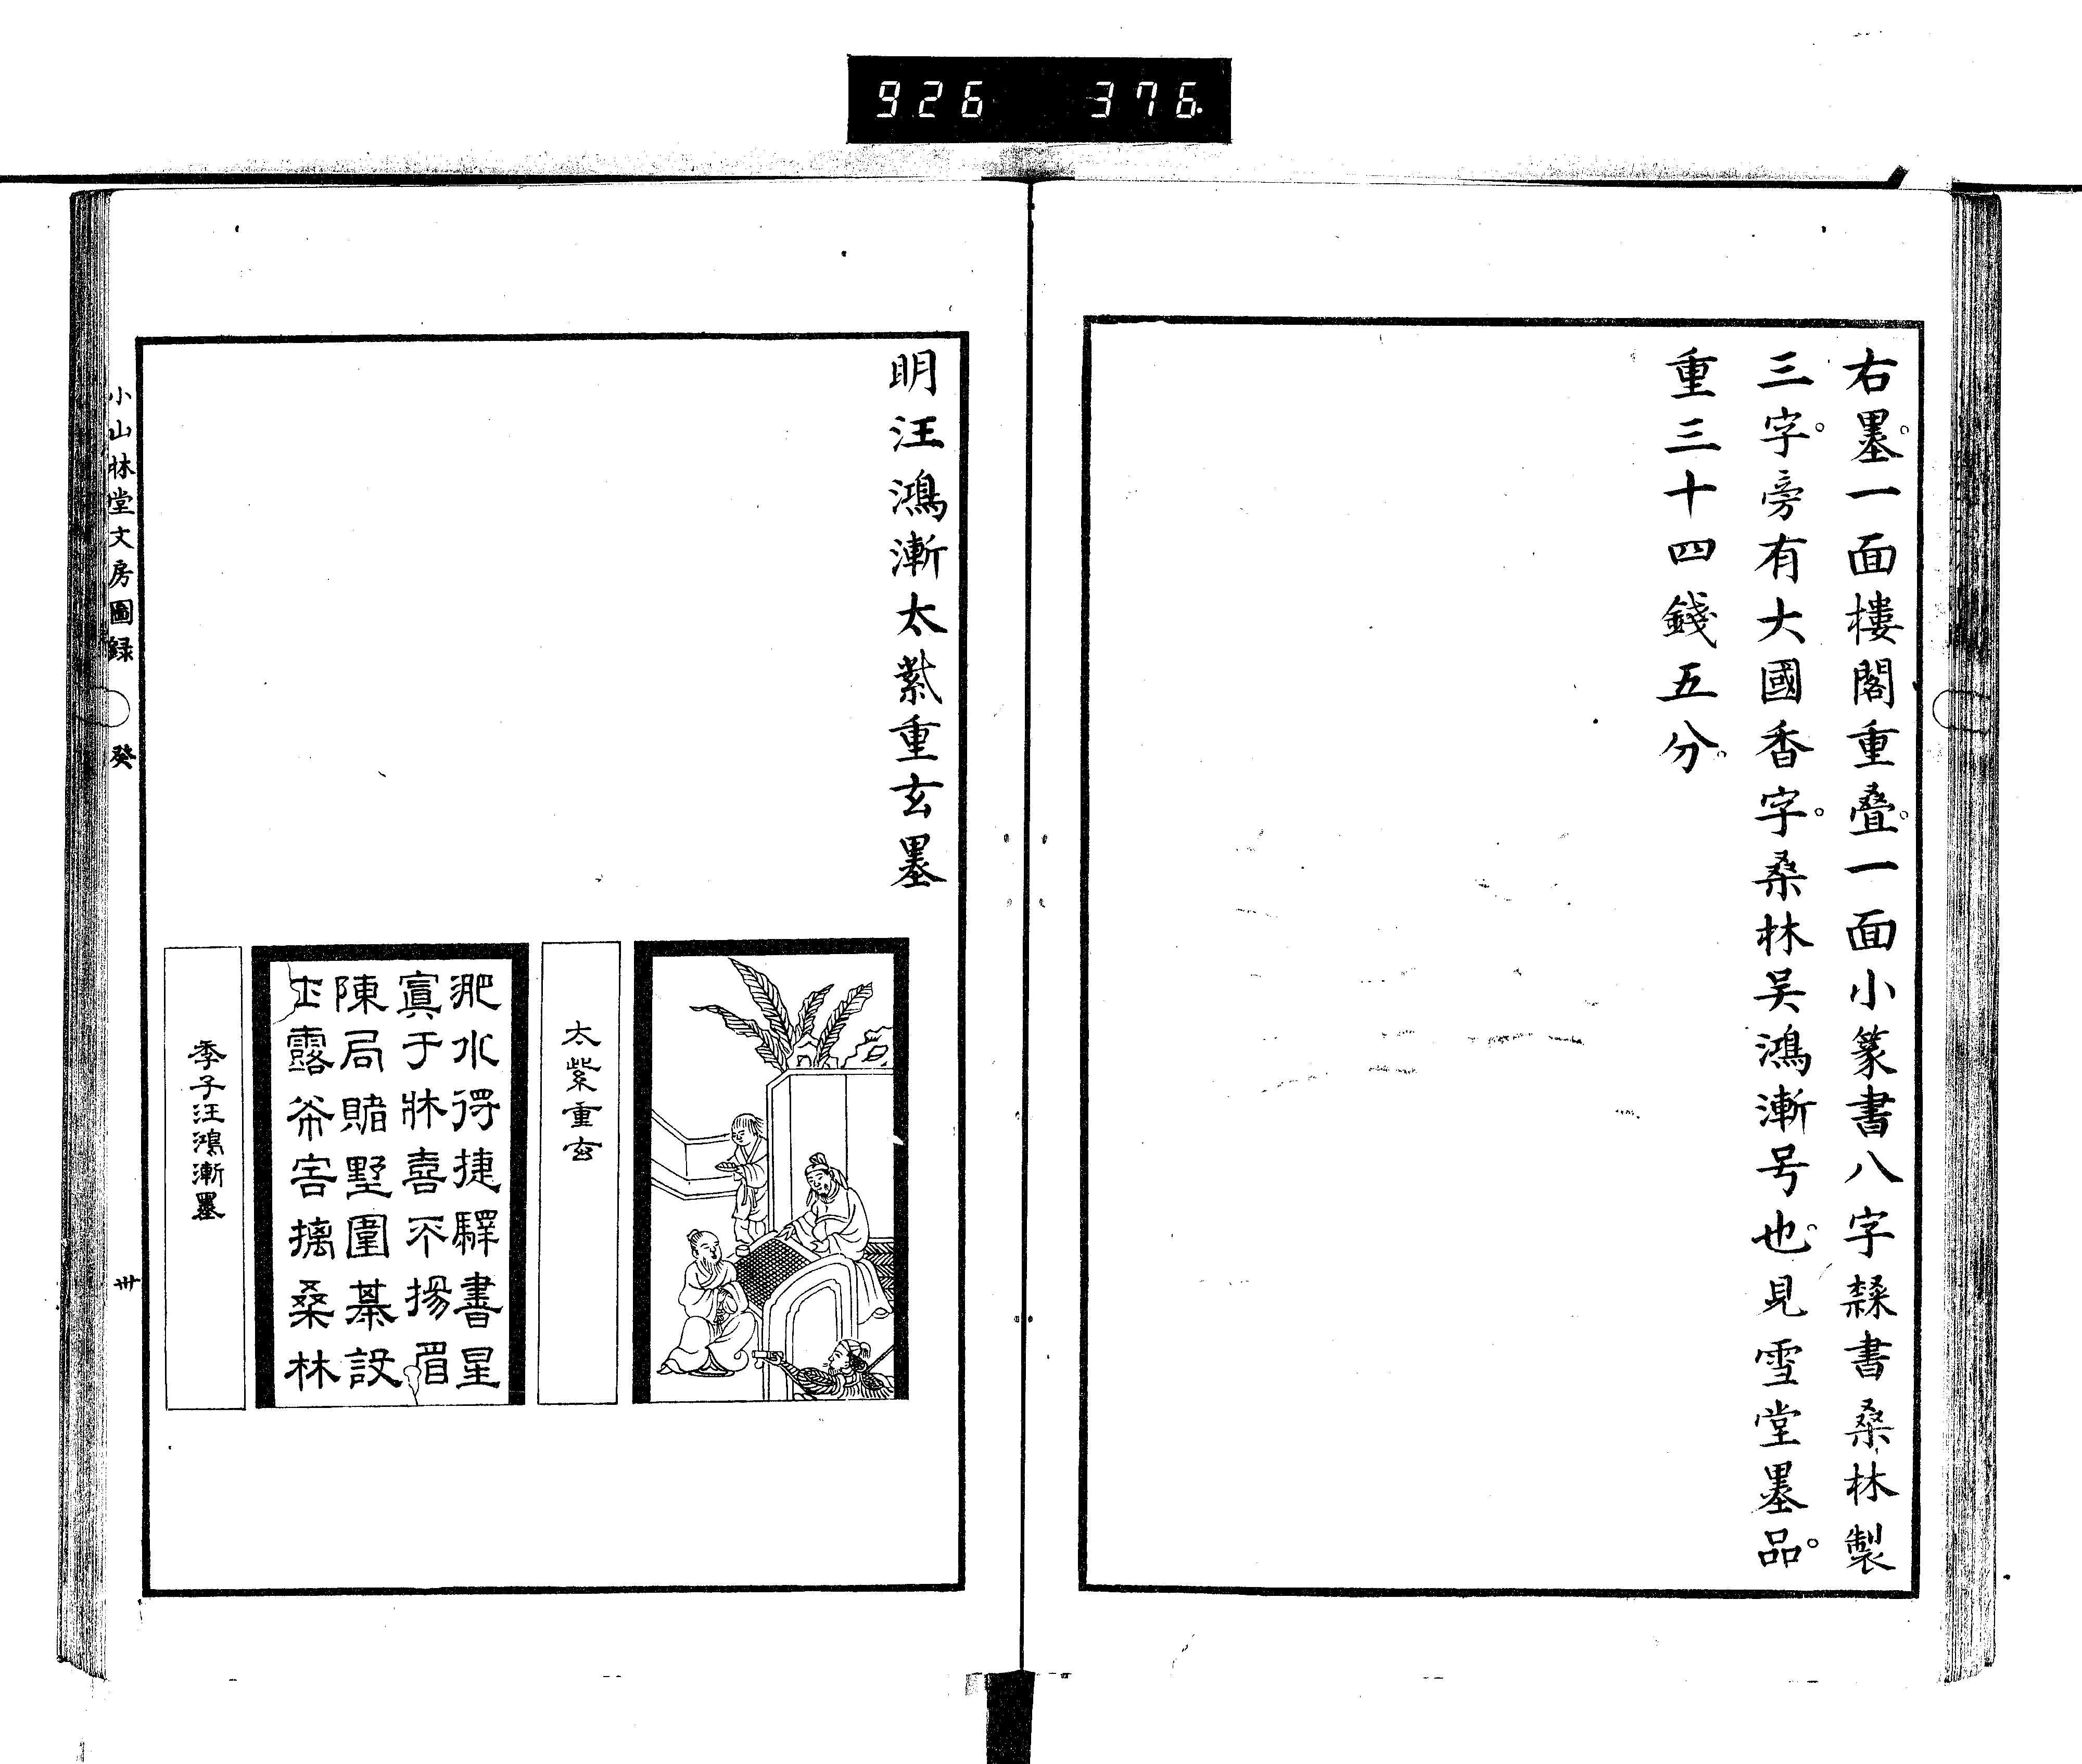 926 376
右墨。一面樓閣重疊。一面小篆書八字隸書桑林製
三字。旁有大國香字。桑林吳鴻漸号也。見雪堂墨品。
重三十四錢五分。
明汪鴻漸太紫重玄墨
太紫重玄
淝水得捷驛書星
寘于牀喜不揚眉
陳局賭墅圍棊設
露爺害摛桑林
季子汪鴻漸墨
小山林堂文房圖録
癸
卅